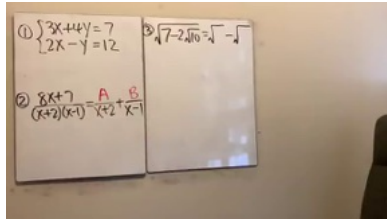 ① { 3x+4y=7
2x-y=12
② 8x+7/(x+2)(x-1) = A/x+2 + B/x-1
③ √7-2√10 = √ - √